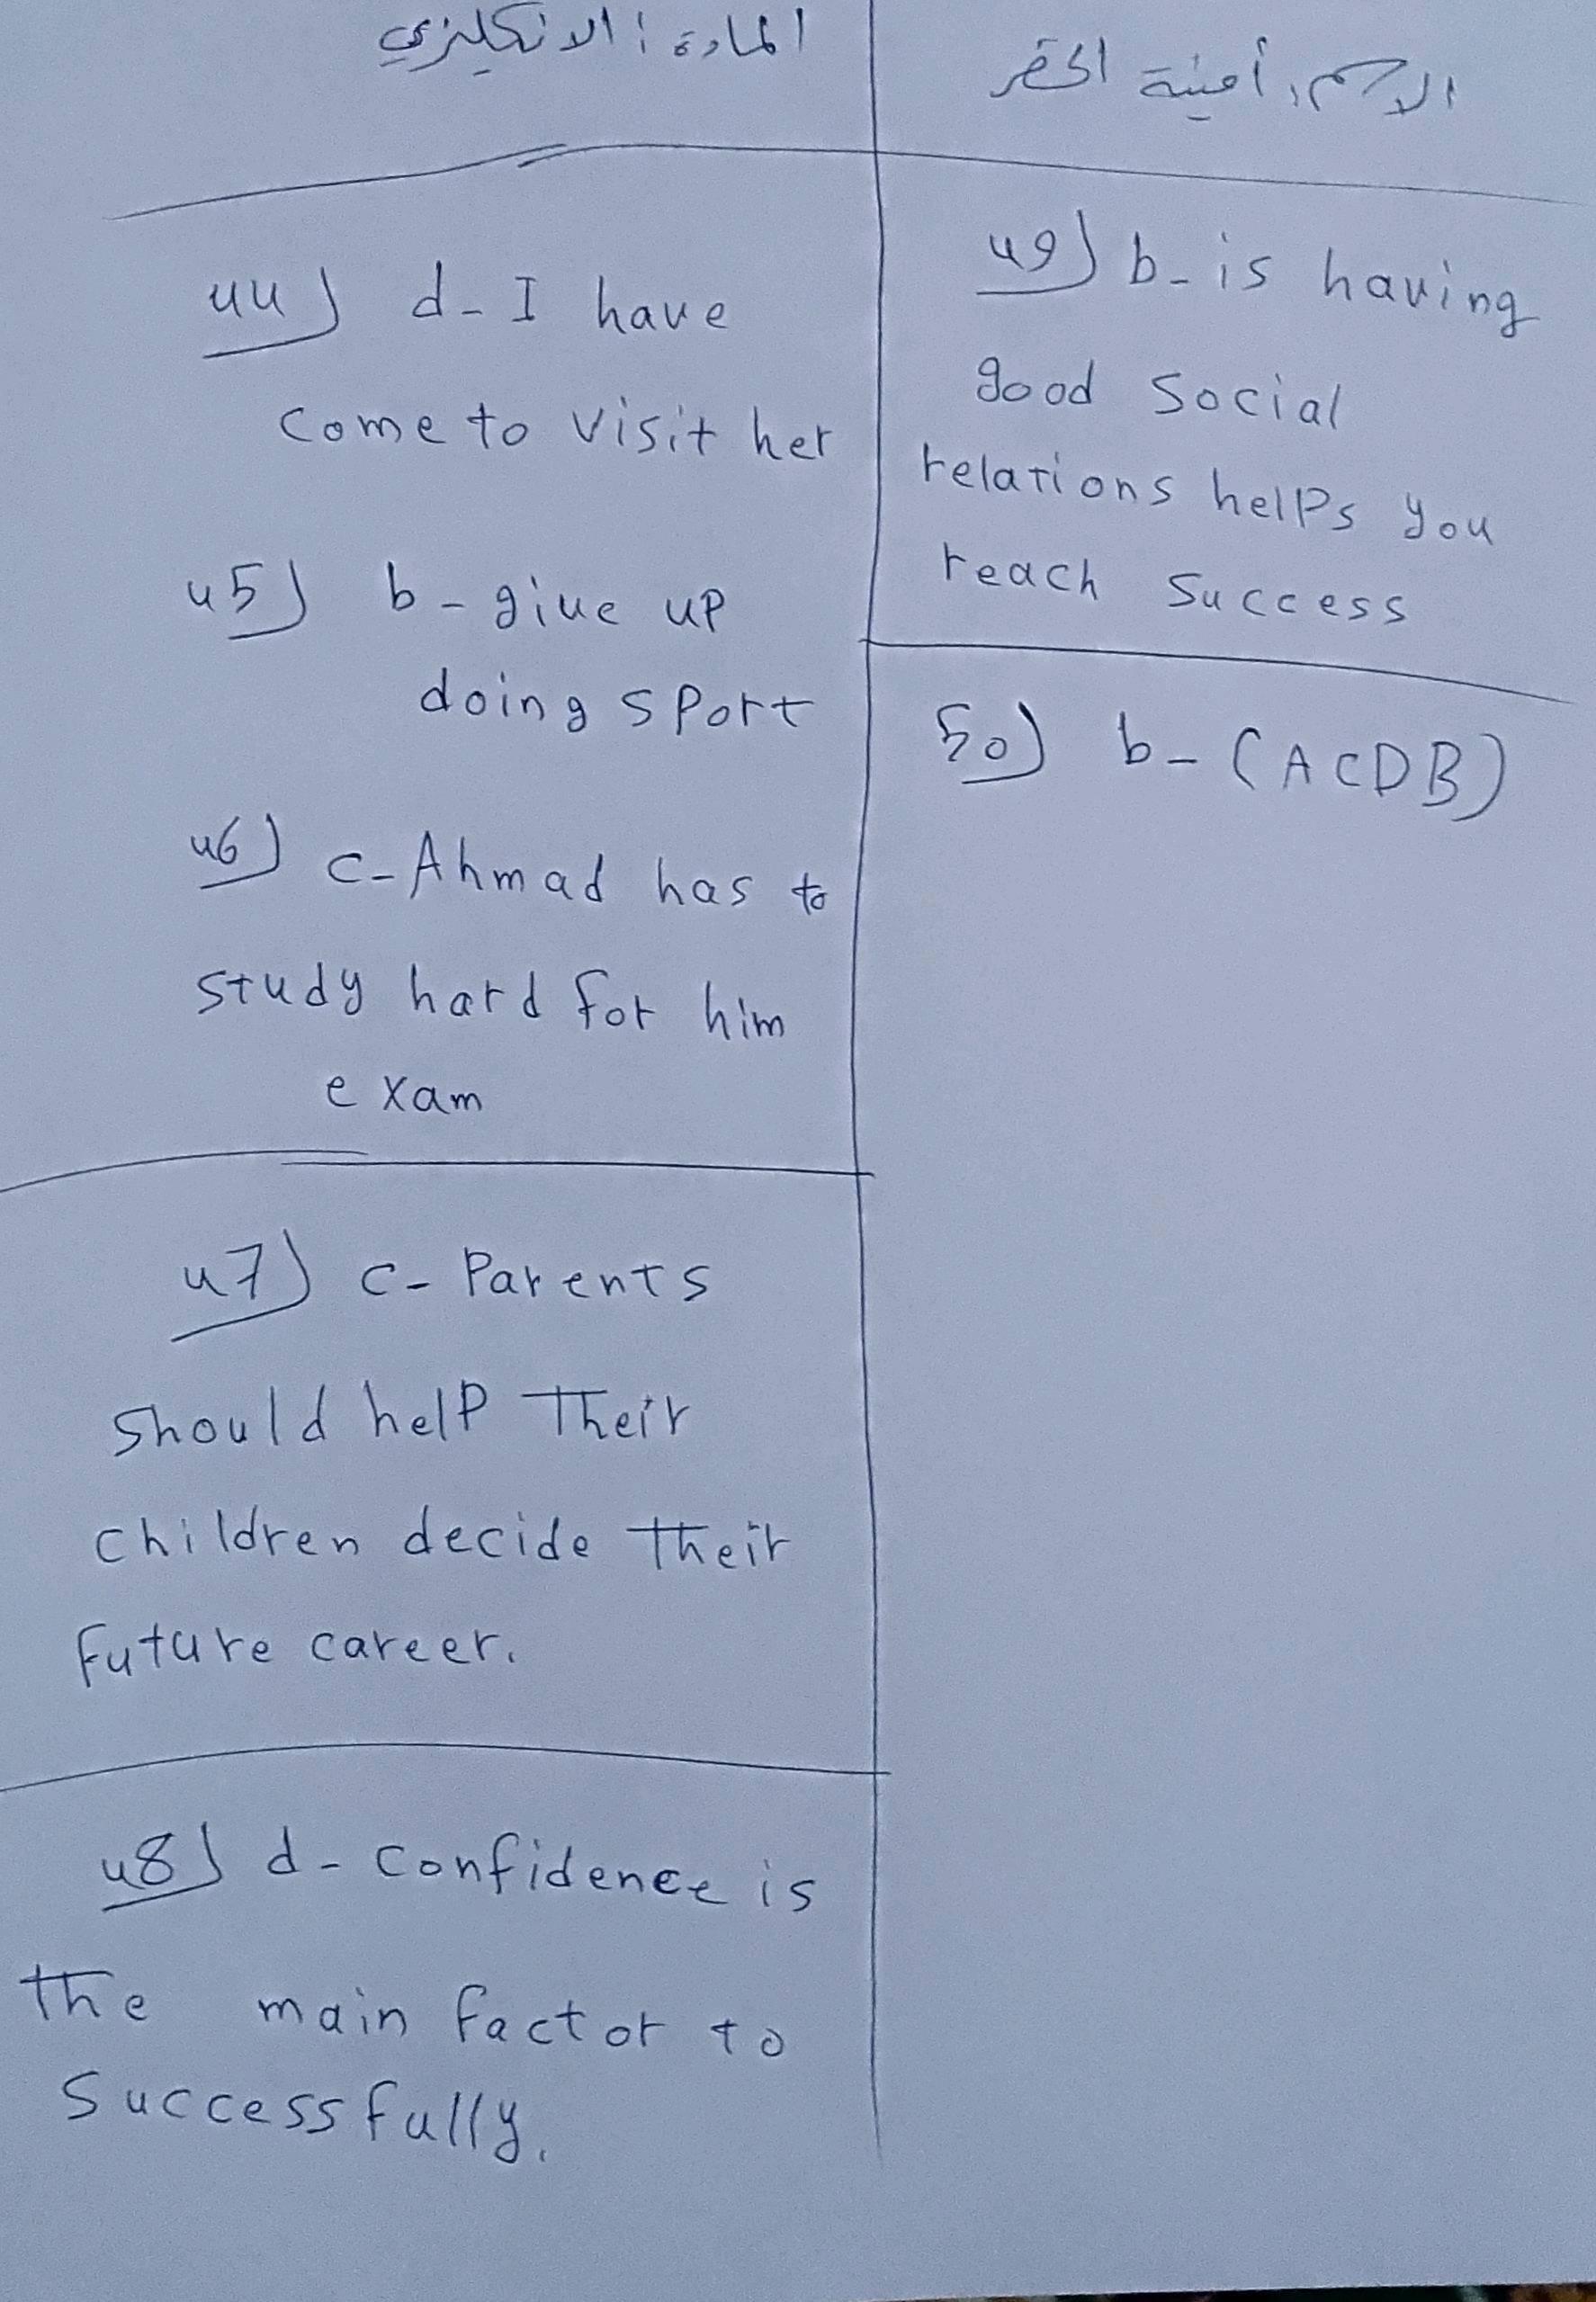 الاسم: أمينة الخضر
المادة: الانكليزي
44) d- I have
come to visit her
45) b- give up
doing sport
46) c- Ahmad has to
study hard for him
exam
47) c- Parents
should help Their
children decide their
Future career.
48) d- confidence is
the main factor to
Successfully.
49) b- is having
good social
relations helps you
reach success
50) b- (ACDB)